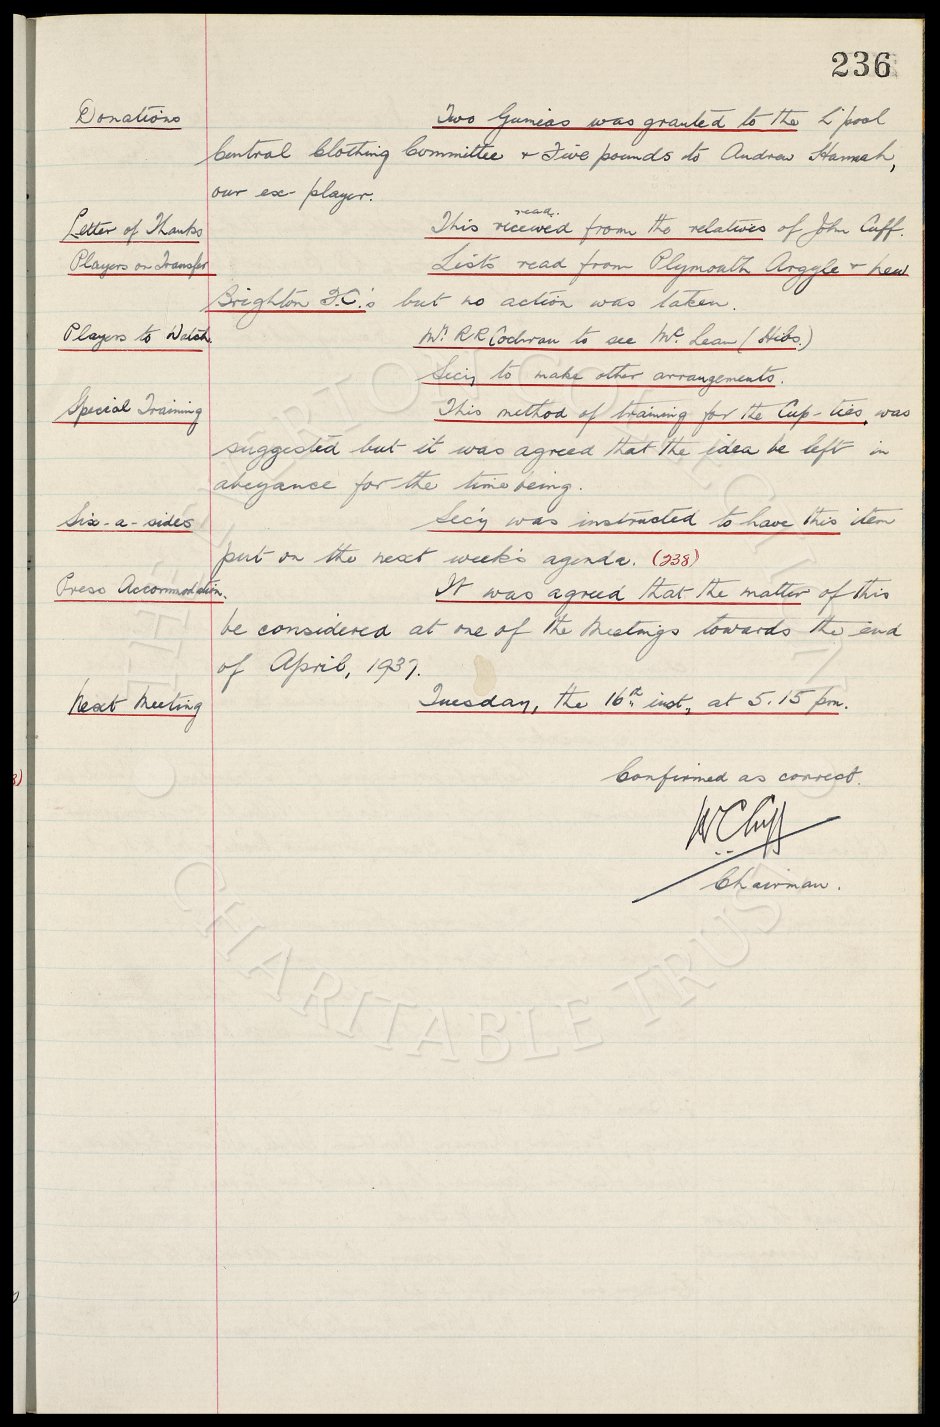 236
Donations Two Guineas was granted to the L'pool
Central Clothing Committee & Five pounds to Andrew Hannah,
our ex-player.
read.
Letter of Thanks This received from the relatives of John Cuff.
Players on Transfer Lists read from Plymouth Argyle & New
Brighton F.C.'s but no action was taken.
Players to Watch. Mr. R R Cochran to see Mc. Lean (Hibs.)
Secy to make other arrangements.
Special Training This method of training for the Cup-ties, was
suggested but it was agreed that the idea be left in
abeyance for the time being.
Six-a-sides Sec'y was instructed to have this item
put on the next week's agenda. (238)
Press Accommodation. It was agreed that the matter of this
be considered at one of the Meetings towards the end
of April, 1937.
Next Meeting Tuesday, the 16th inst., at 5.15 pm.
Confirmed as correct.
W C Cuff
Chairman.
THE EVERTON COLLECTION
CHARITABLE TRUST